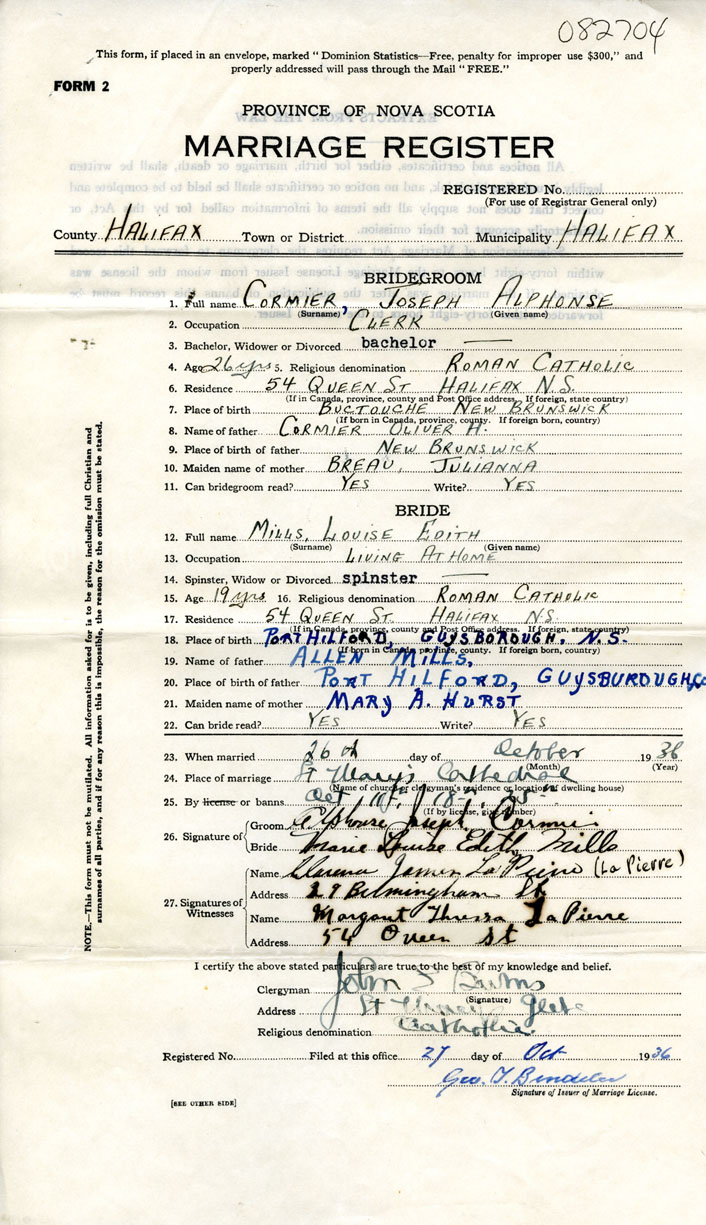 082704
This form, if placed in an envelope, marked "Dominion Statistics—Free, penalty for improper use $300," and
properly addressed will pass through the Mail "FREE."
FORM 2
PROVINCE OF NOVA SCOTIA
MARRIAGE REGISTER
REGISTERED No.
(For use of Registrar General only)
County HALIFAX Town or District Municipality HALIFAX
BRIDEGROOM
1. Full name CORMIER, JOSEPH ALPHONSE
(Surname) (Given name)
2. Occupation CLERK
3. Bachelor, Widower or Divorced bachelor
4. Age 26 yrs 5. Religious denomination ROMAN CATHOLIC
6. Residence 54 QUEEN ST HALIFAX N.S.
(If in Canada, province, county and Post Office address. If foreign, state country)
7. Place of birth BUCTOUCHE NEW BRUNSWICK
(If born in Canada, province, county. If foreign born, country)
8. Name of father CORMIER OLIVER H.
9. Place of birth of father NEW BRUNSWICK
10. Maiden name of mother BREAU, JULIANNA
11. Can bridegroom read? YES Write? YES
BRIDE
12. Full name MILLS, LOUISE EDITH
(Surname) (Given name)
13. Occupation LIVING AT HOME
14. Spinster, Widow or Divorced spinster
15. Age 19 yrs 16. Religious denomination ROMAN CATHOLIC
17. Residence 54 QUEEN ST. HALIFAX NS
(If in Canada, province, county and Post Office address. If foreign, state country)
18. Place of birth PORT HILFORD, GUYSBOROUGH, N.S.
(If born in Canada, province, county. If foreign born, country)
19. Name of father ALLEN MILLS.
20. Place of birth of father PORT HILFORD, GUYSBUROUGH Co
21. Maiden name of mother MARY A. HURST
22. Can bride read? YES Write? YES
23. When married 26th day of October 1936
(Month) (Year)
24. Place of marriage St Mary's Cathedral
(Name of church or clergyman's residence or location of dwelling house)
25. By license or banns Oct 18th
(If by license, give number)
26. Signature of Groom Alphonse Joseph Cormier
Bride Marie Louise Edith Mills
27. Signatures of Witnesses
Name Clarence James La Pierre (La Pierre)
Address 29 Belmingham St.
Name Margaret Theresa La Pierre
Address 54 Queen St
I certify the above stated particulars are true to the best of my knowledge and belief.
Clergyman John Burns
(Signature)
Address St Mary's Glebe
Religious denomination Catholic
Registered No. Filed at this office 27 day of Oct 1936
Geo.
Signature of Issuer of Marriage License.
[SEE OTHER SIDE]
NOTE.—This form must not be mutilated. All information asked for is to be given, including full Christian and
surnames of all parties, and if for any reason this is impossible, the reason for the omission must be stated.